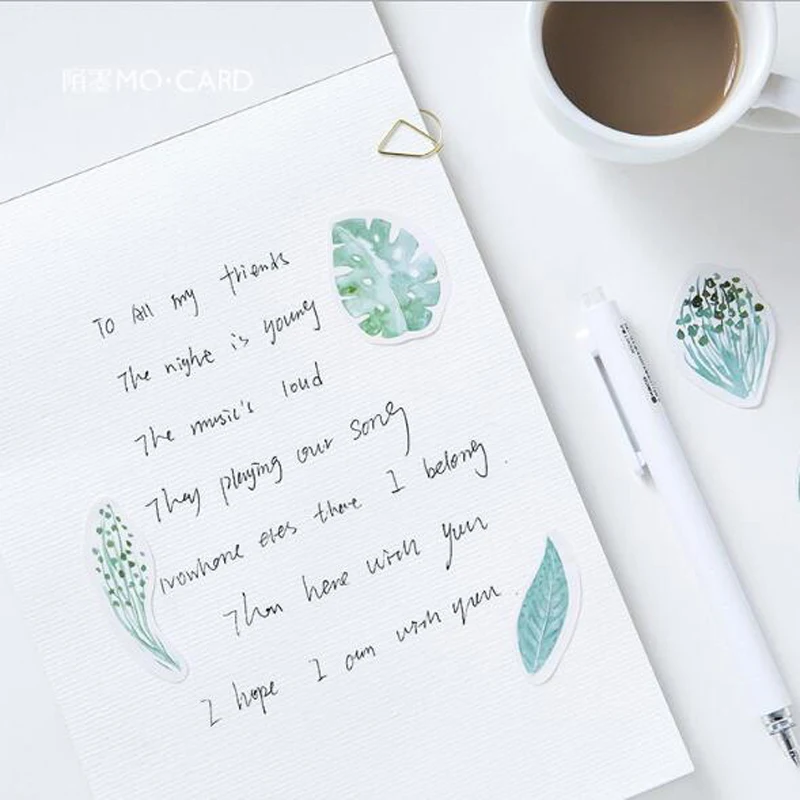 陌墨MO·CARD
To All my friends
The night is young
The music's loud
They playing our song
Nowhere eles there I belong.
Than here with you
I hope I am with you.